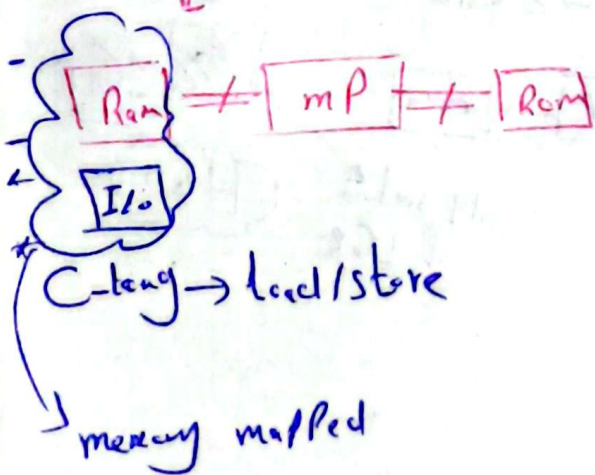 Ram mP Rom
I/o
C-lang → load/store
memory mapped